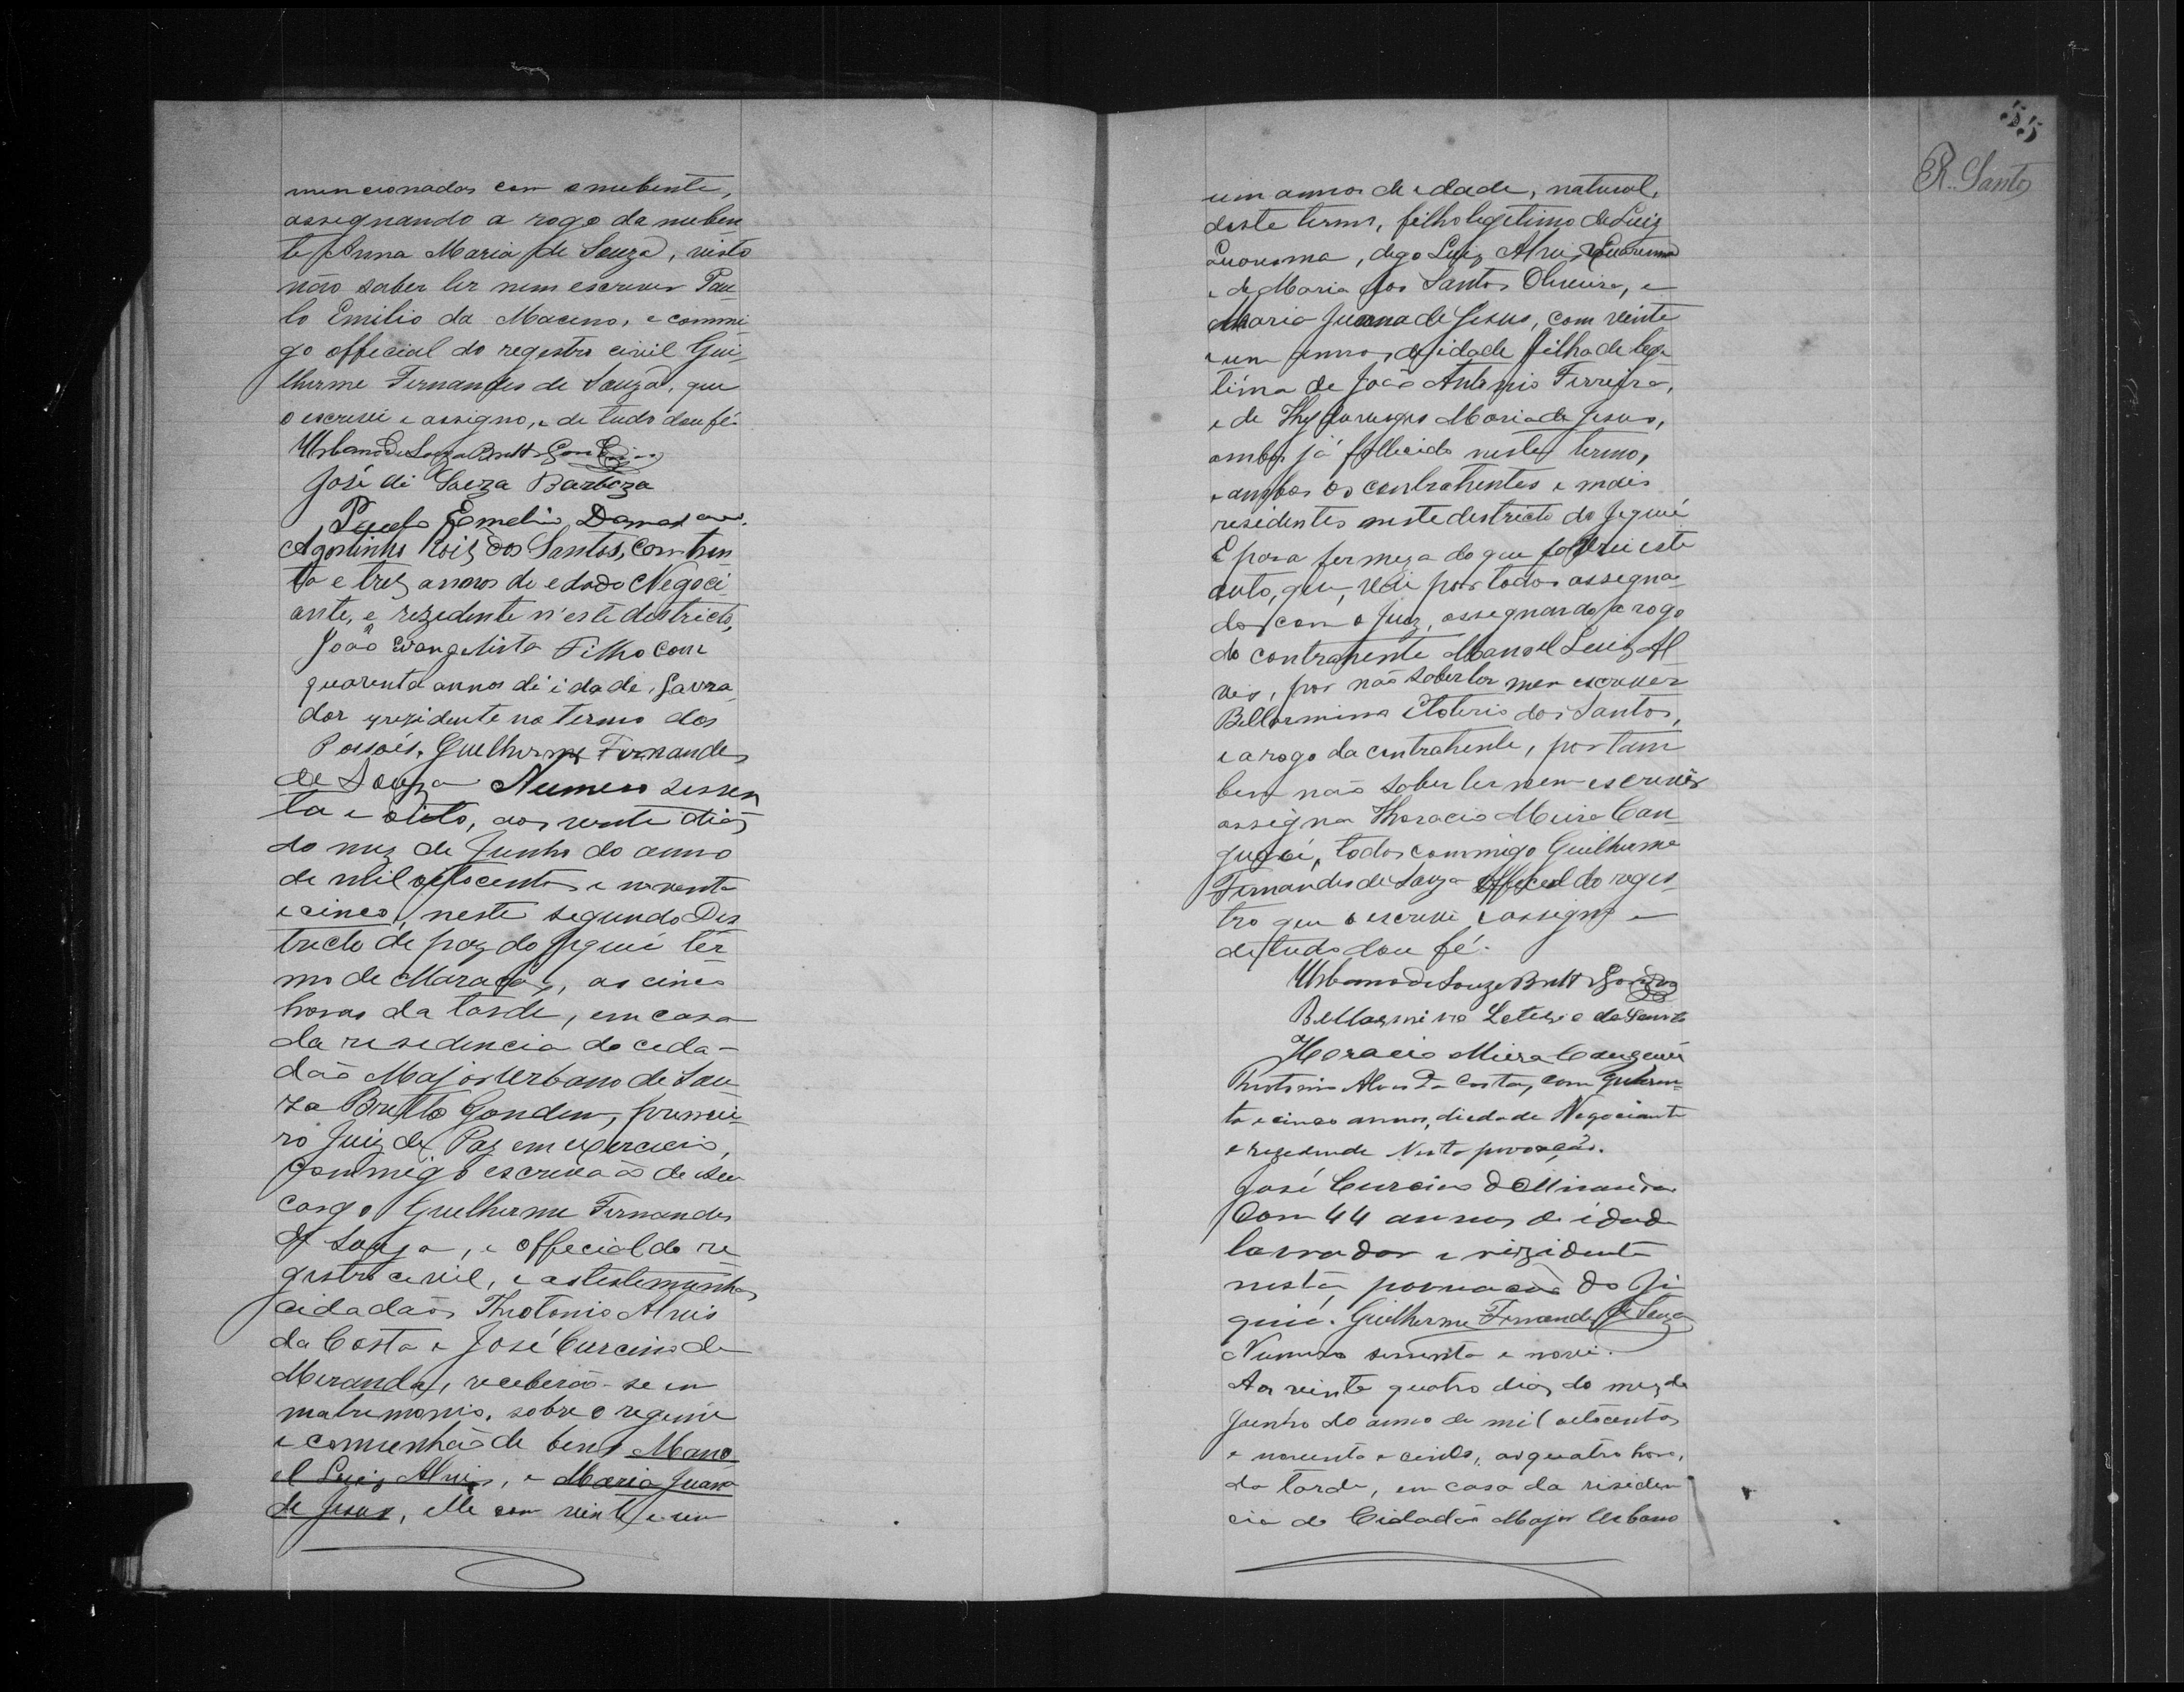 mencionados com o nubente,
assegnando a rogo da nuben-
te Anna Maria de Souza, visto
não saber ler nem escrever Pau-
lo Emilio da Maceno, e commi-
go official do registro civil Gui-
lherme Fernandes de Souza, que
o escrevi e assigno, e de tudo dou fé.
Urbano de Souza Britto Gondim
José di Soeza Barboza
Paulo Emelio Damaceno
Agostinho Roiz dos Santos, com trin
ta e trez annos de edade Negoci-
ante, e rezidente n'este destricto,
João Evangelista Filho com
quarenta annos di idade, Lavra
dor e rezidente no termo dos
Possões. Guelherme Fernandes
de Souza Numero sessen
ta e oito, aos vente dias
do mez de Junho do anno
de mil oitocentos e noventa
e cinco, neste segundo Des
tricto de paz do Jequié ter-
mo de Maracás, as cinco
horas da tarde, em casa
da residencia do cida-
dão Major Urbano de Sou
za Britto Gondim, premei-
ro Juiz de Paz em exercicio,
commigo escrivão de seu
cargo Guelherme Fernandes
de Souza, e offecial do re
gistro civil, e as testemunhas
cidadãos Theotonio Alves
da Costa e José Curcino de
Meranda, receberão-se em
matremonio, sobre o regime
e comunhão de bens Mano
el Luiz Alves, e Maria Juana
de Jesus, elle com vinte e um
55
R. Santos
um annos de edade, natural,
deste termo, filho legitimo de Luiz
Quaresma, digo Luiz Alves Quaresma
e de Maria dos Santos Oliveira, e
Maria Juana de Jesus, com vinte
e um annos de idade filha de legi-
tima de João Antonio Ferreira,
e de Maria de Jesus,
ambos já fallecido neste termo,
e ambos os contrahentes e mais
residentes neste destricto do Jequié
E para fermeza do que lavrei este
auto, que vai por todos assegna-
do com o Juiz, assegnando a rogo
do contrahente Manoel Luiz Al
ves, por não saber ler nem escrever
Bellarmino Eloterio dos Santos,
e a rogo da contrahente, por tam
bem não saber ler nem escrever
assigna Horacio Meira Can
guçú, todos commigo Guilherme
Fernandes de Souza offecial do regis-
tro que o escrevi e assigno e
de tudo dou fé.
Urbano de Souza Britto Gondim
Bellarmino Leterio do Santo
Horacio Meira Canguçú
Theotonio Alves da Costa, com quaren-
ta e cinco annos, de edade Negociante
e rezedende Nesta povoação.
José Curcino d Miranda
Com 44 annos de idade
lavrador e rizidente
nesta povoação do Ji
quié. Guilherme Fernandes de Souza
Numero sessenta e nove.
Aos vinte quatro dias do mez de
Junho do anno de mil oitocentos
e noventa e cinco, as quatro horas,
da tarde, em casa da residen
cia do Cidadão Major Urbano